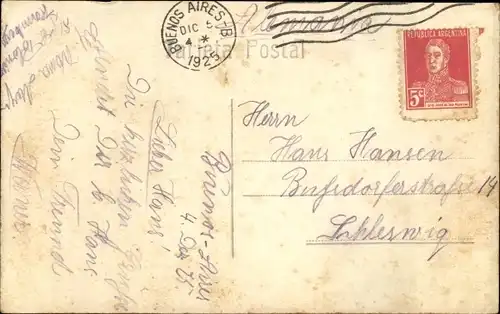 Alemania
BUENOS AIRES
DIC 5
4 *
1925
Tarjeta Postal
REPUBLICA ARGENTINA
5c
Herrn
Hans Hansen
14
Schleswig
Buenos-Aires
4 Dez 25.
Lieber Hans
Die herzlichen Grüße
sendet Dir lb Hans
Dein Freund
Werner